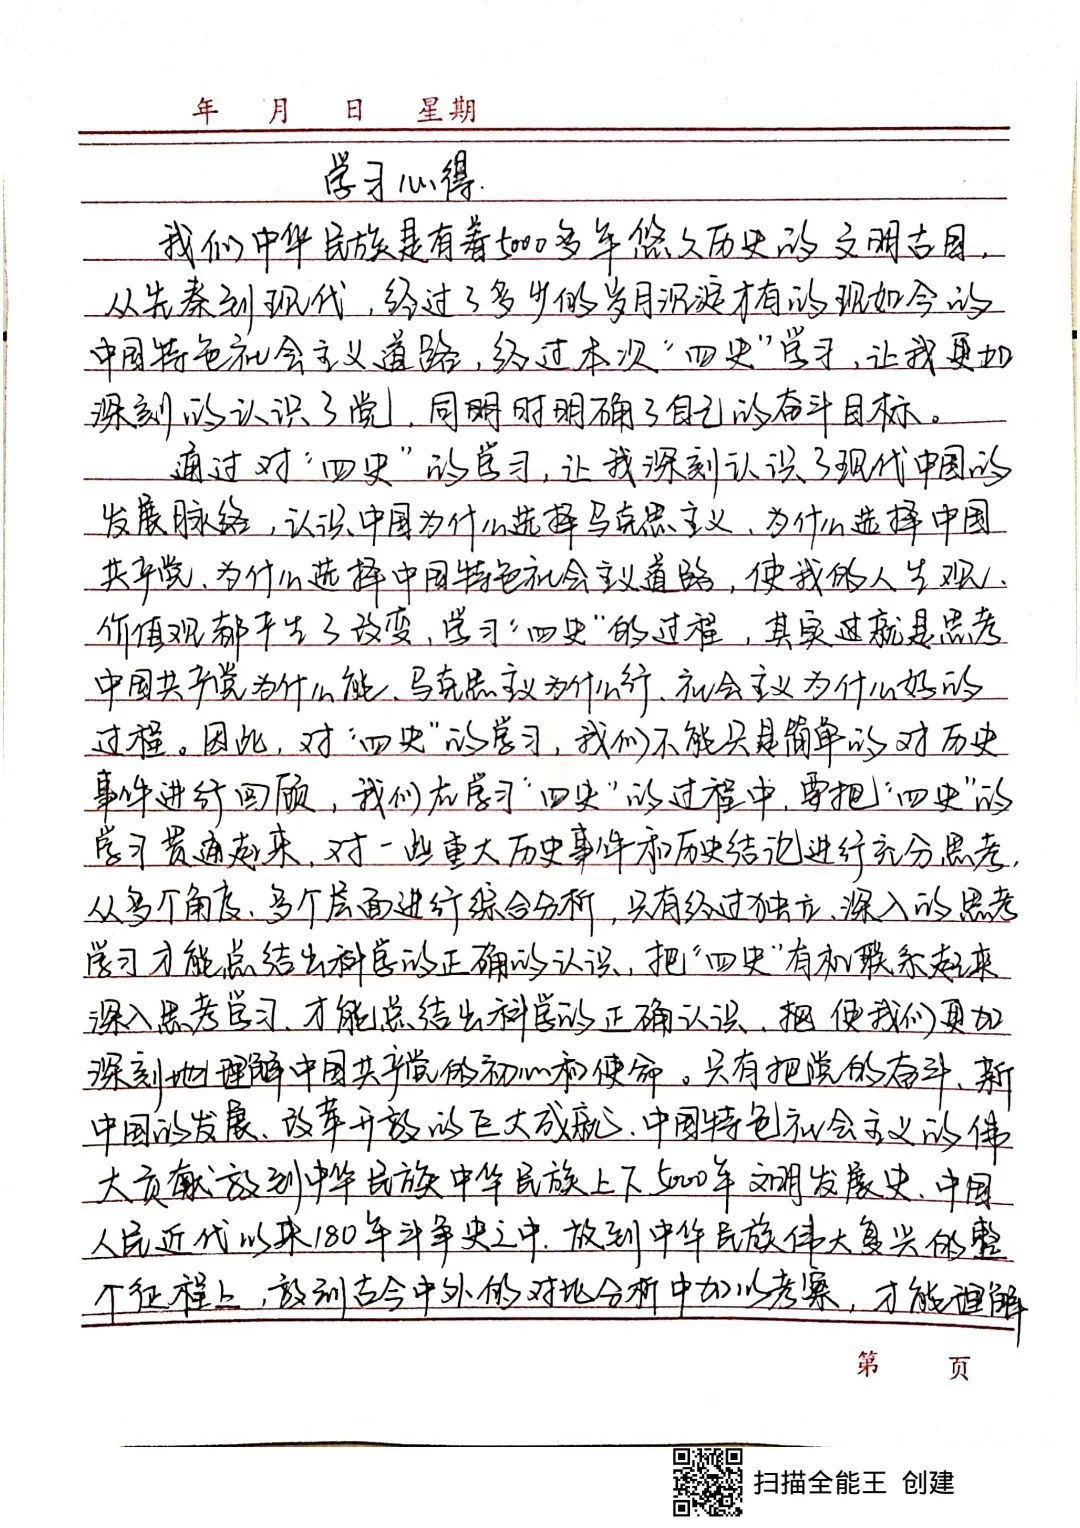 年 月 日 星期
学习心得.
我们中华民族是有着5000多年悠久历史的文明古国，
从先秦到现代，经过了多少的岁月沉淀才有的现如今的
中国特色社会主义道路，经过本次“四史”学习，让我更加
深刻的认识了党，同时明确了自己的奋斗目标。
通过对“四史”的学习，让我深刻认识了现代中国的
发展脉络，认识中国为什么选择马克思主义、为什么选择中国
共产党、为什么选择中国特色社会主义道路，使我的人生观、
价值观都产生了改变，学习“四史”的过程，其实过就是思考
中国共产党为什么能、马克思主义为什么行、社会主义为什么好的
过程。因此，对“四史”的学习，我们不能只是简单的对历史
事件进行回顾，我们在学习“四史”的过程中，要把“四史”的
学习贯通起来，对一些重大历史事件和历史结论进行充分思考，
从多个角度、多个层面进行综合分析，只有经过独立、深入的思考
学习才能总结出科学的正确的认识，把“四史”有机联系起来
深入思考学习、才能总结出科学的正确认识，把 使我们更加
深刻地理解中国共产党的初心和使命。只有把党的奋斗、新
中国的发展、改革开放的巨大成就、中国特色社会主义的伟
大贡献放到中华民族中华民族上下5000年文明发展史、中国
人民近代以来180年斗争史之中，放到中华民族伟大复兴的整
个征程上，放到古今中外的对比分析中加以考察，才能理解
第 页
扫描全能王 创建